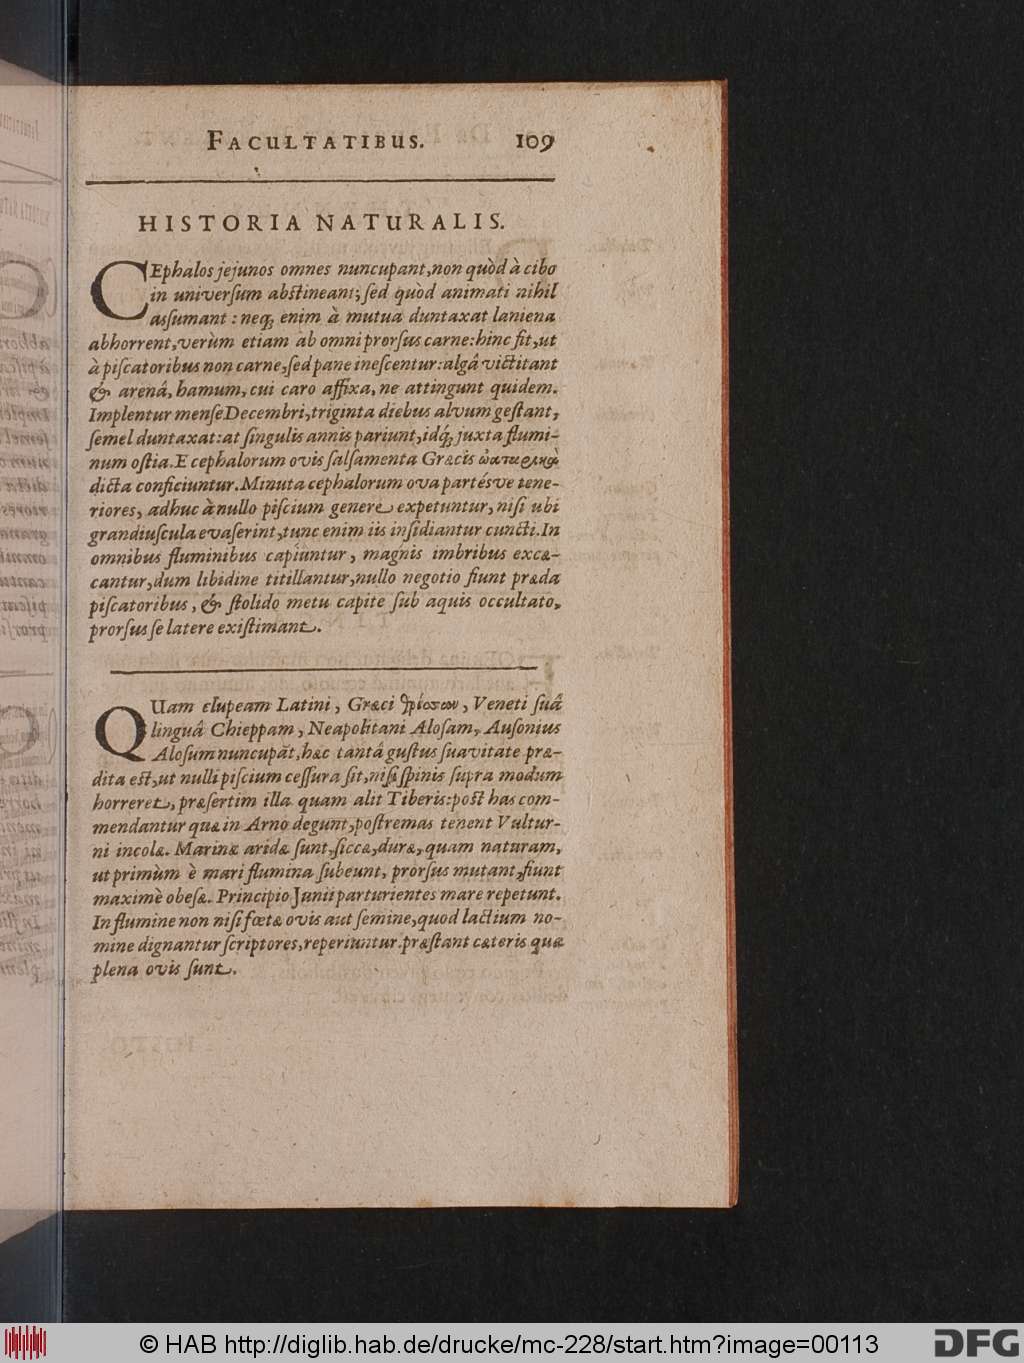 FACULTATIBUS. 109
HISTORIA NATURALIS.
CEphalos jejunos omnes nuncupant, non quòd à cibo
in universum abstineant; sed quòd animati nihil
assumant: neq; enim à mutua duntaxat laniena
abhorrent, verùm etiam ab omni prorsus carne: hinc fit, ut
à piscatoribus non carne, sed pane inescentur: algâ victitant
& arenâ, hamum, cui caro affixa, ne attingunt quidem.
Implentur mense Decembri, triginta diebus alvum gestant,
semel duntaxat: at singulis annis pariunt, idq; juxta flumi-
num ostia. E cephalorum ovis salsamenta Græcis
dicta conficiuntur. Minuta cephalorum ova partésve tene-
riores, adhuc à nullo piscium genere expetuntur, nisi ubi
grandiuscula evaserint, tunc enim iis insidiantur cuncti. In
omnibus fluminibus capiuntur, magnis imbribus excæ-
cantur, dum libidine titillantur, nullo negotio fiunt præda
piscatoribus, & stolido metu capite sub aquis occultato,
prorsus se latere existimant.
QUam clupeam Latini, Græci θρίσσαν, Veneti suâ
linguâ Chieppam, Neapolitani Alosam, Ausonius
Alosum nuncupāt, hæc tantâ gustus suavitate præ-
dita est, ut nulli piscium cessura sit, nisi spinis supra modum
horreret, præsertim illa quam alit Tiberis: post has com-
mendantur quæ in Arno degunt, postremas tenent Vultur-
ni incolæ. Marinæ aridæ sunt, siccæ, duræ, quam naturam,
ut primùm è mari flumina subeunt, prorsus mutant, fiunt
maximè obesæ. Principio Junii parturientes mare repetunt.
In flumine non nisi fœtæ ovis aut semine, quod lactium no-
mine dignantur scriptores, reperiuntur. præstant cæteris quæ
plena ovis sunt.
© HAB http://diglib.hab.de/drucke/mc-228/start.htm?image=00113
DFG